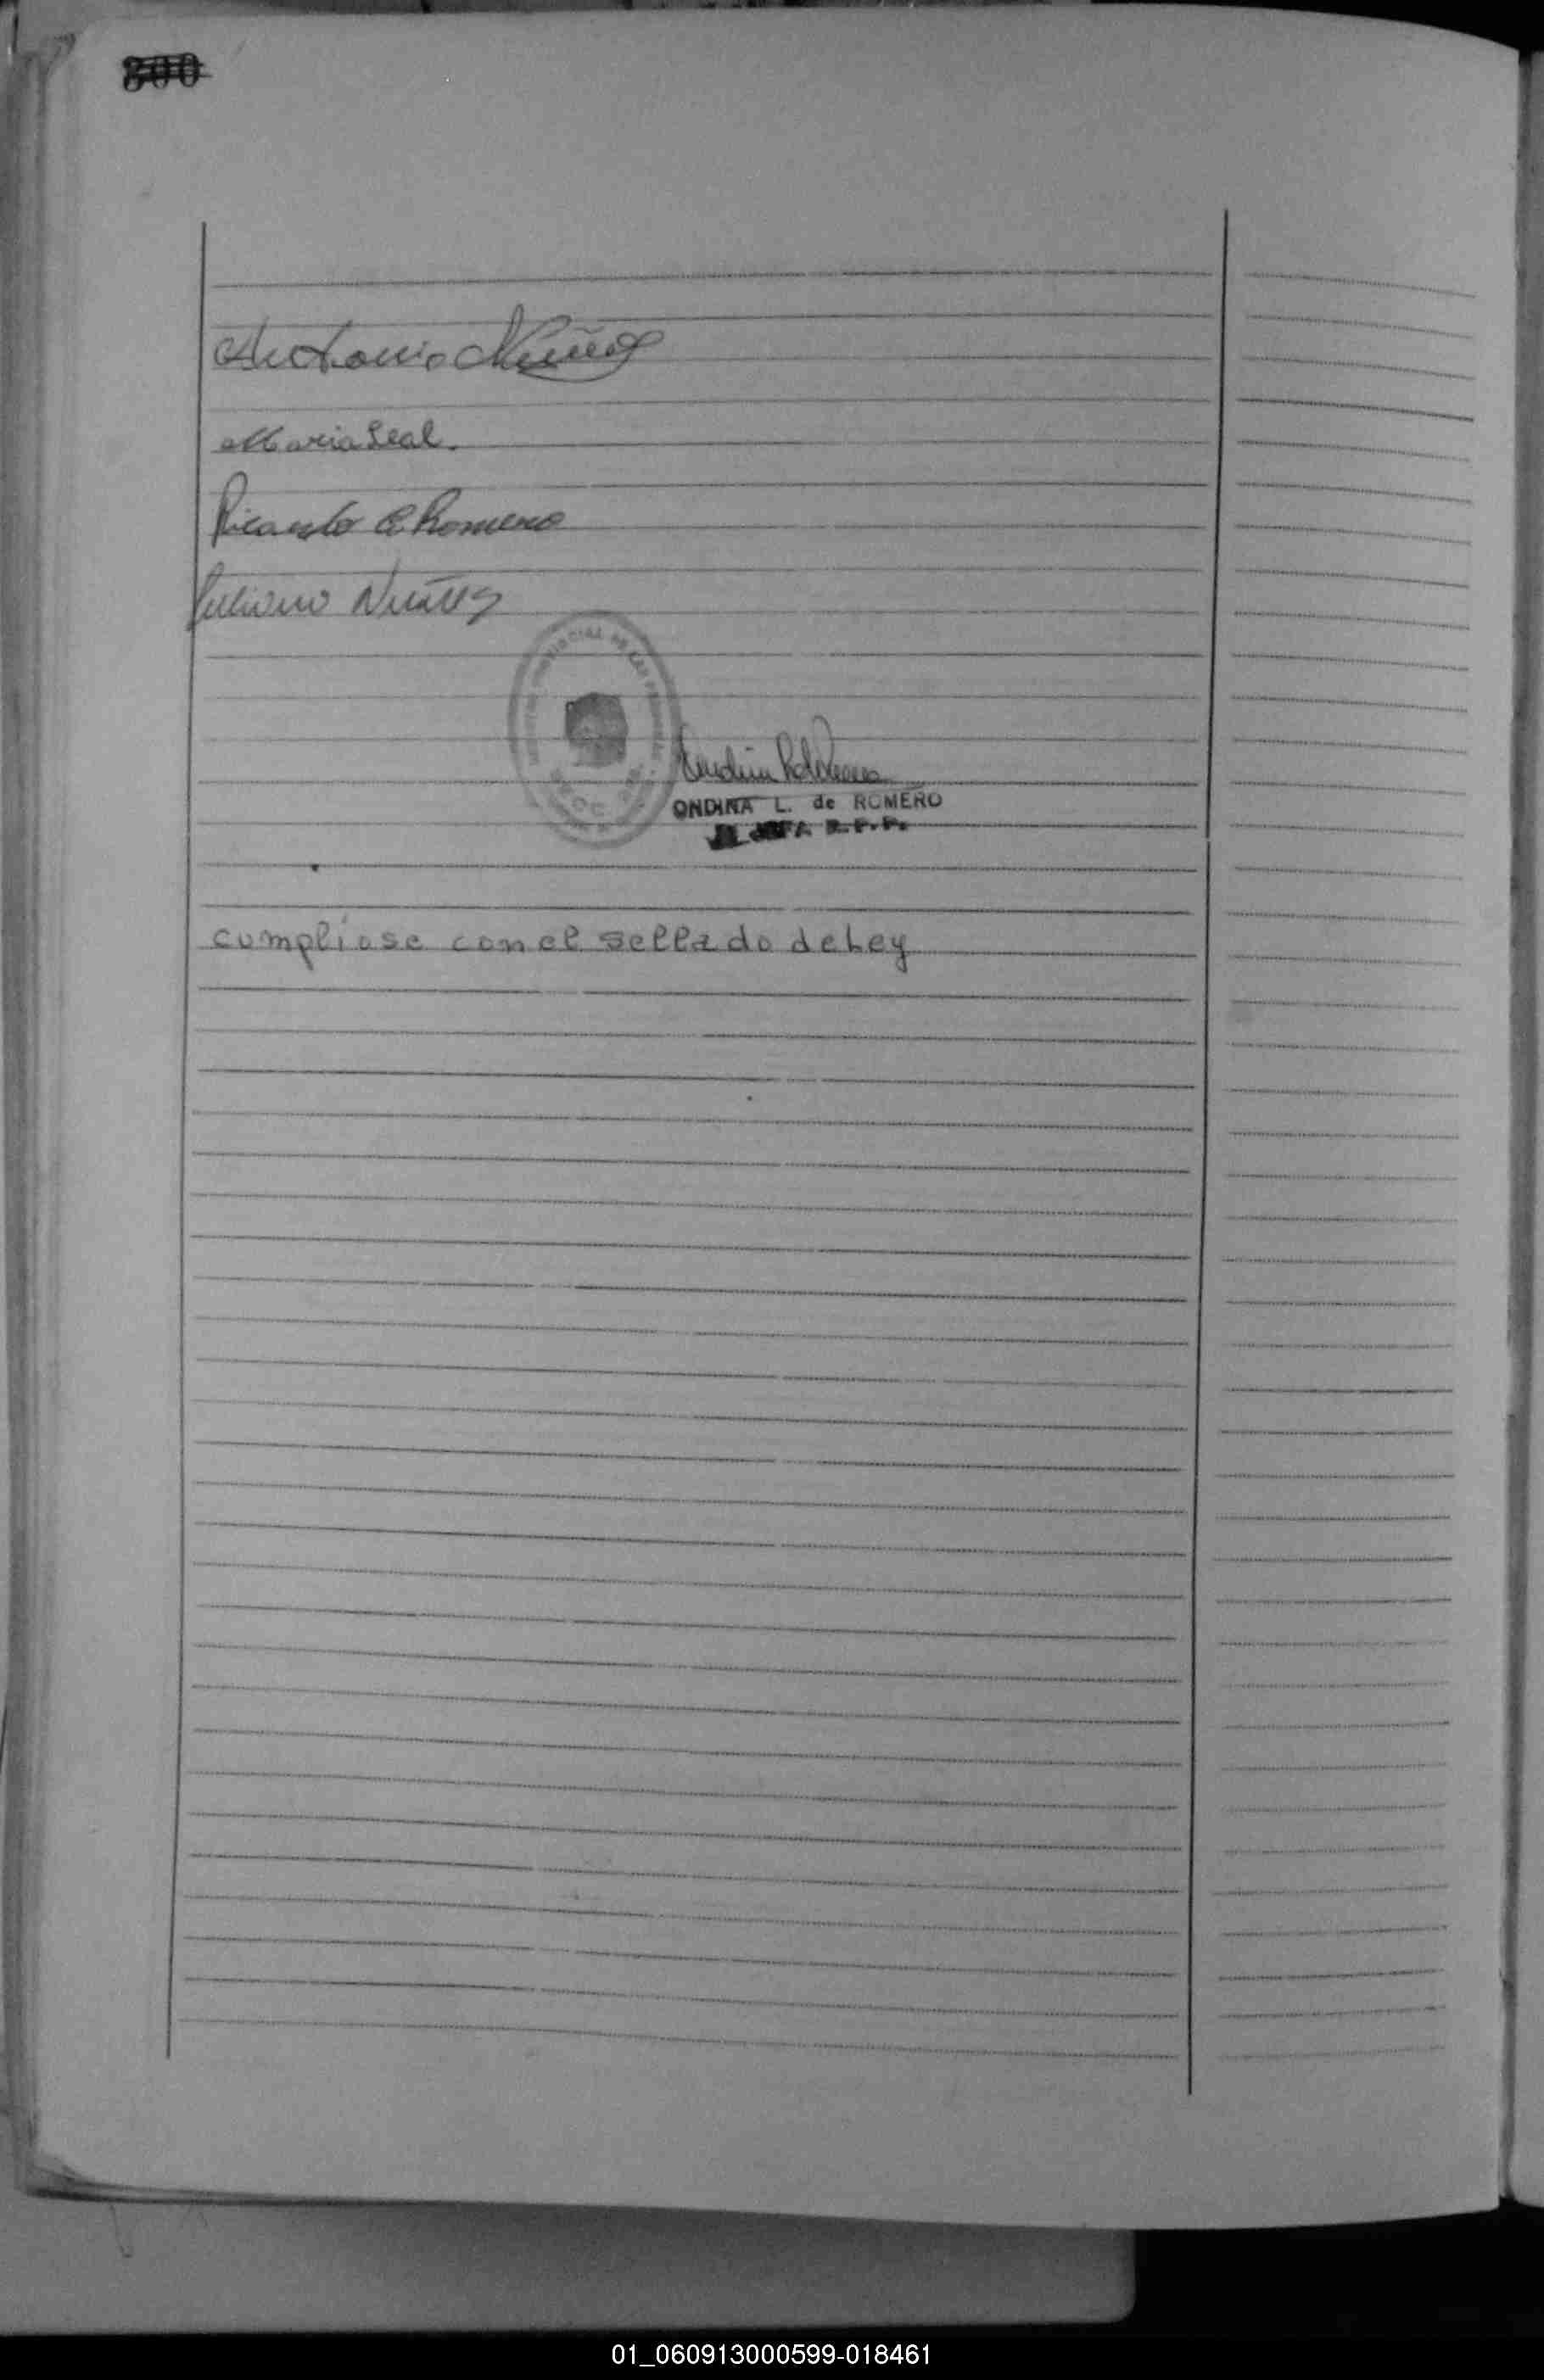 300
Antonio Nuñez
Maria Leal.
Ricardo C Romero
Juliano Nuñez
ONDINA L. de ROMERO
JEFA R.P.P.
cumpliose con el sellado de Ley
01_060913000599-018461